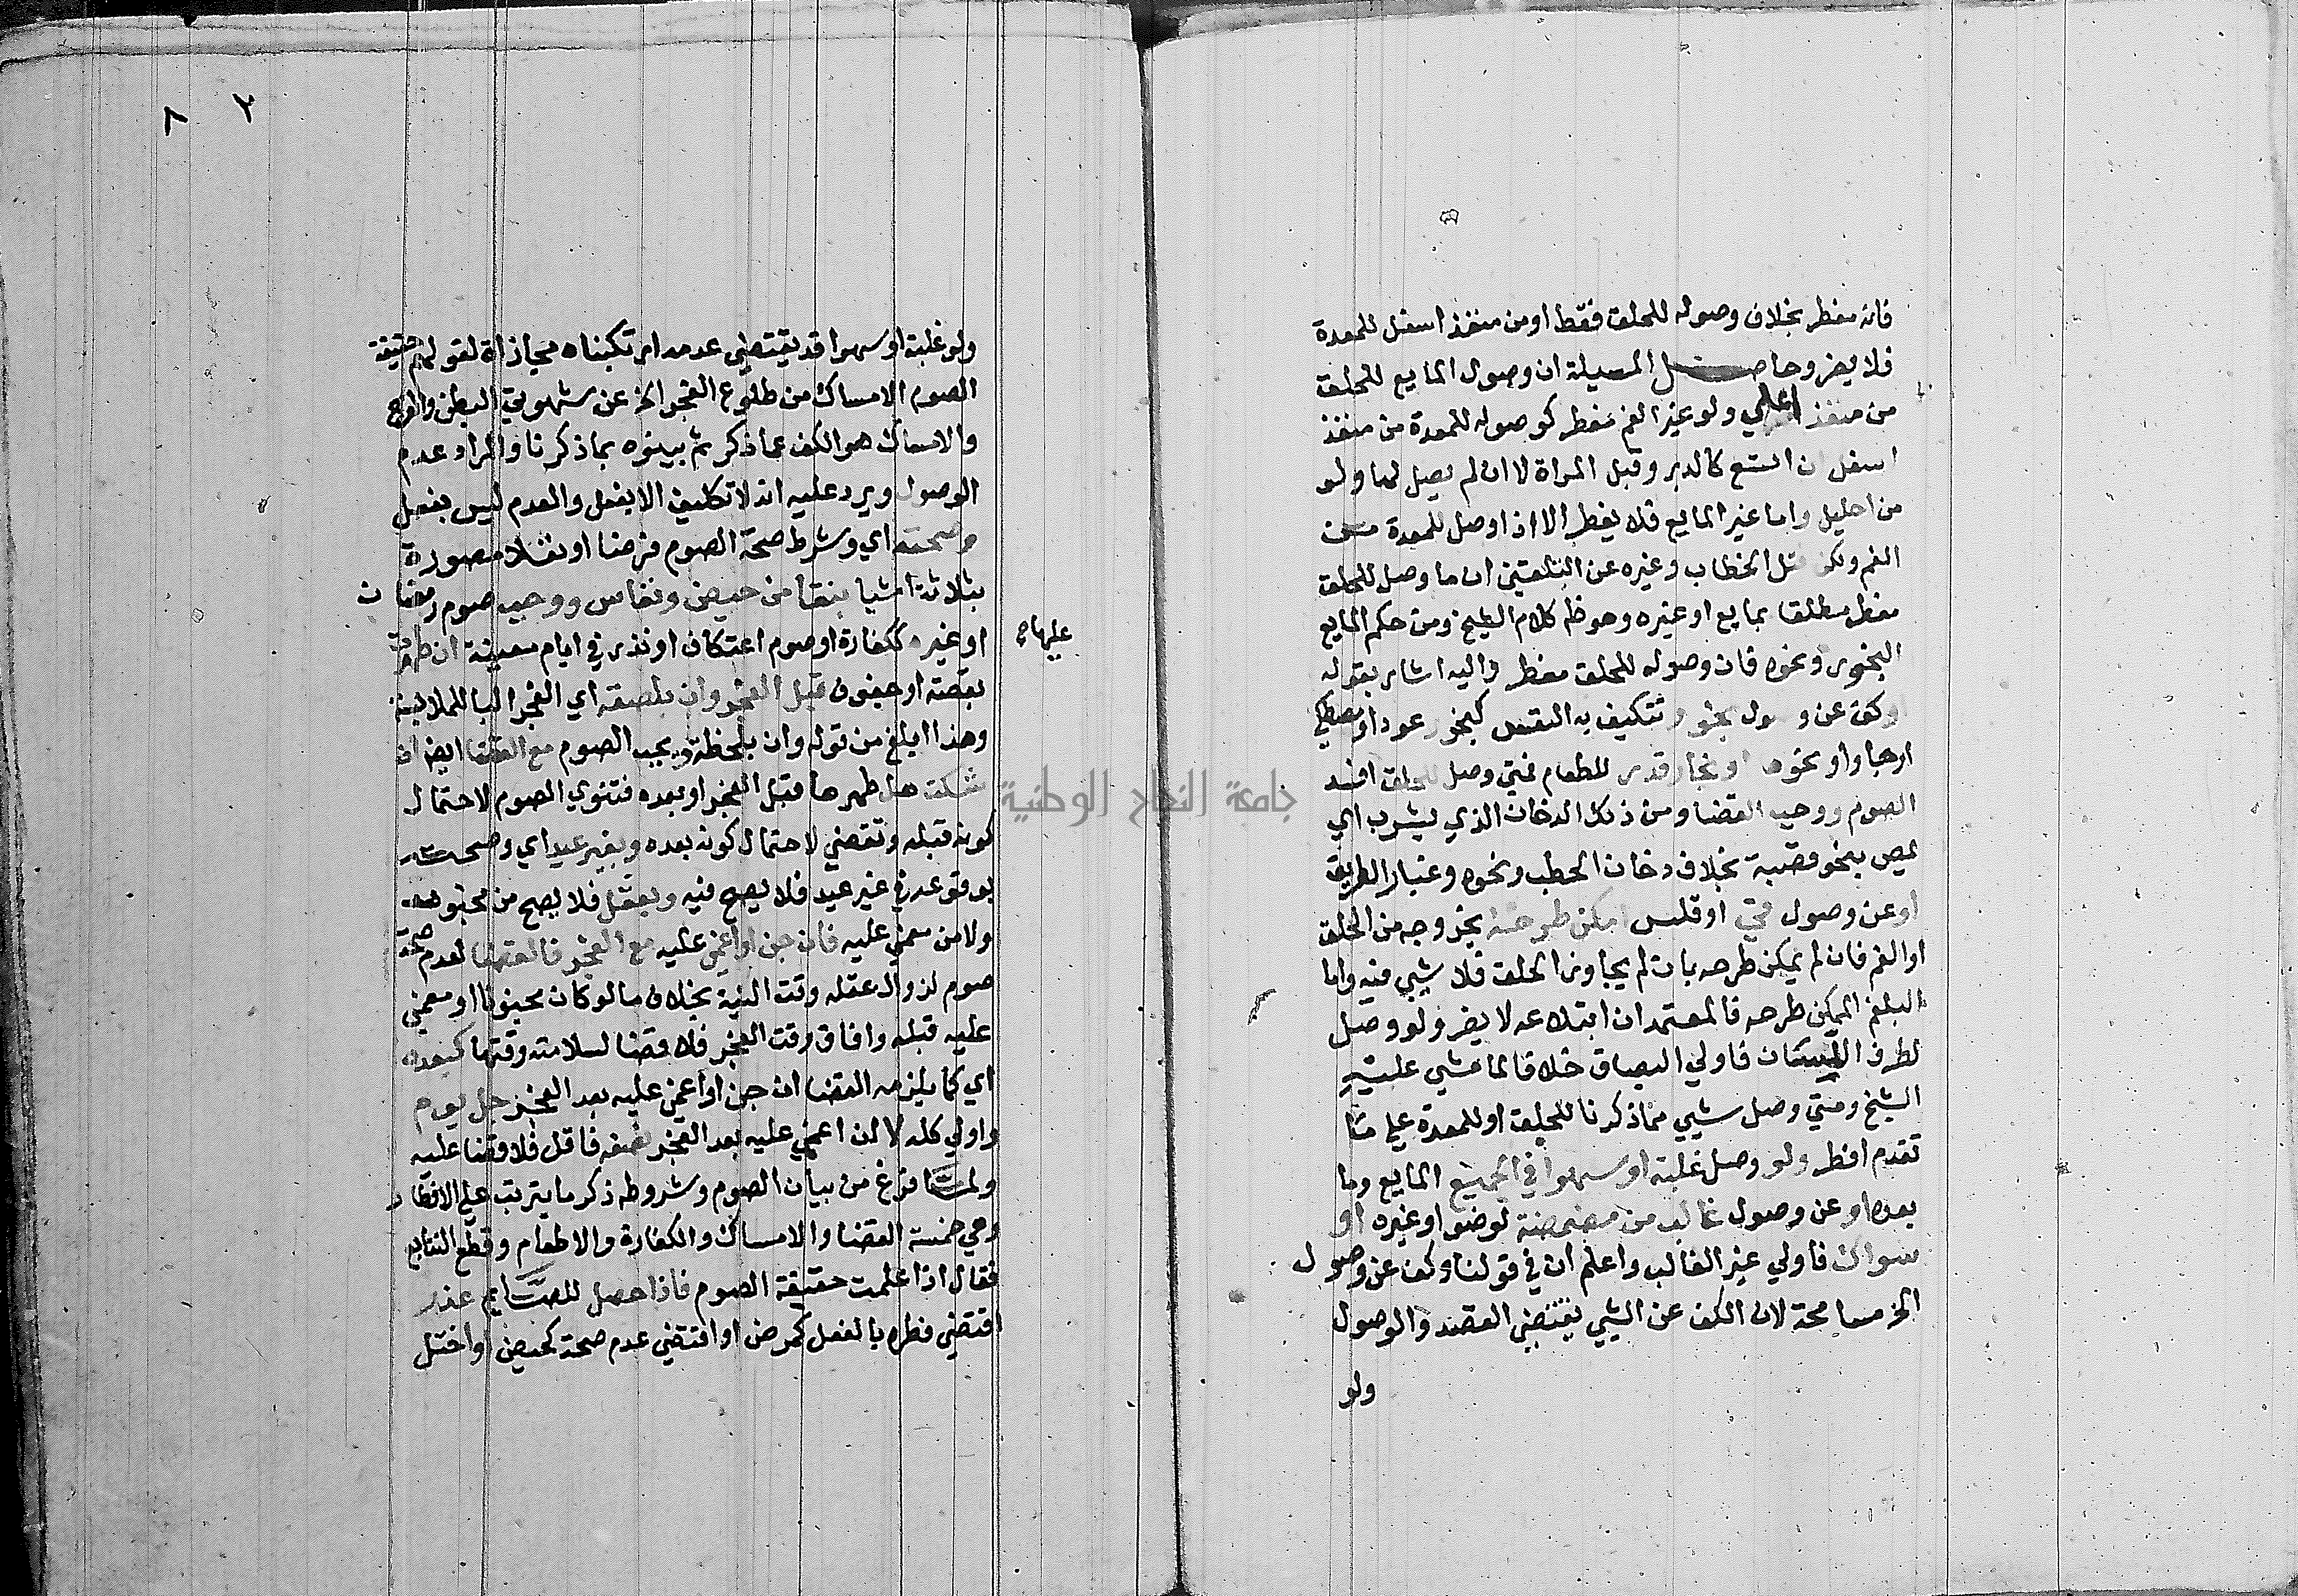 فانه مفطر بخلاف وصوله للحلق فقط او من منفذ اسفل للمعدة
فلا يضر وحاصل المسيلة ان وصول المايع للحلق
من منفذ اعلي ولو غير الفم مفطر كوصوله للمعدة من منفذ
اسفل ان اتسع كالدبر وقبل المراة لا ان لم يصل لها ولو
من احليل واما غير المايع فلا يفطر الا اذا وصل للمعدة من
الفم ولكن نقل الحطاب وغيره عن التلقين ان ما وصل للحلق
مفطر مطلقا بمايع او غيره وهو ظ كلام الشيخ ومن حكم المايع
البخور ونحوه فان وصوله للحلق مفطر واليه اشار بقوله
او كف عن وصول بخور تتكيف به النفس كبخور عود او مصطكي
او جاوا ونحوها او بخار قدر للطعام فمتي وصل للحلق افسد
الصوم ووجب القضا ومن ذلك الدخان الذي يشرب اي
يمص بنحو قصبة بخلاف دخان الحطب ونحوه وغبار الطريق
او عن وصول قيي او قلس امكن طرحه بخروجه من الحلق
او الفم فان لم يمكن طرحه بان لم يجاوز الحلق فلا شيي فيه واما
البلغم الممكن طرحه فالمعتمد ان ابتلاعه لا يضر ولو وصل
لطرف اللسان فاولي البصاق خلافا لما مشي عليه
الشيخ ومتي وصل شيي مما ذكرنا للحلق او للمعدة علي ما
تقدم افطر ولو وصل غلبة او سهوا في الجميع المايع وما
بعده او عن وصول غالب من مضمضة لوضو او غيره او
سواك فاولي غير الغالب واعلم ان في قولنا وكف عن وصول
الخ مسامحة لان الكف عن الشيي يقتضي القصد والوصول
ولو
٨ ٢
ولو غلبة او سهوا قد يقتضي عدمه ارتكبناه مجازاة لقولهم حقيقة
الصوم الامساك من طلوع الفجر الخ عن شهوتي البطن والفرج
والامساك هو الكف عما ذكر ثم بينوه بما ذكرنا والمراد عدم
الوصول ويرد عليه انه لا تكليف الا بفعل والعدم ليس بفعل
وصحته اي وشرط صحة الصوم فرضا او نفلا مصورة
بثلاثة اشيا بنقا من حيض ونفاس ووجب صوم رمضان
او غيره ككفارة او صوم اعتكاف او نذر في ايام معينة ان طهرت
عليها صح
بقصة او جفوف قبل الفجر وان بلصقه اي الفجر البا للملابسة
وهذا ابلغ من قوله وان بلحظة ويجب الصوم مع القضا ايضا ان
شكت هل طهرها قبل الفجر او بعده فتنوي الصوم لاحتمال
كونه قبله وتقضي لاحتمال كونه بعده وبغير عيد اي وصحته
بوقوعه في غير عيد فلا يصح فيه وبعقل فلا يصح من مجنون
ولا من مغمي عليه فان جن او اغمي عليه مع الفجر فالقضا لعدم صحة
صوم لزوال عقله وقت النية بخلاف ما لو كان مجنونا او مغمي
عليه قبله وافاق وقت الفجر فلا قضا لسلامته وقتها كبعده
اي كما يلزمه القضا ان جن او اغمي عليه بعد الفجر جل يوم
واولي كله لا ان اغمي عليه بعد الفجر نصفه فاقل فلا قضا عليه
ولما فرغ من بيان الصوم وشروطه ذكر ما يترتب علي الافطار
وهي خمسة القضا والامساك والكفارة والاطعام وقطع التتابع
فقال اذا علمت حقيقة الصوم فاذا حصل للصايم عذر
اقتضي فطره بالفعل كمرض او اقتضي عدم صحته كحيض او اختل
جامعة النجاح الوطنية